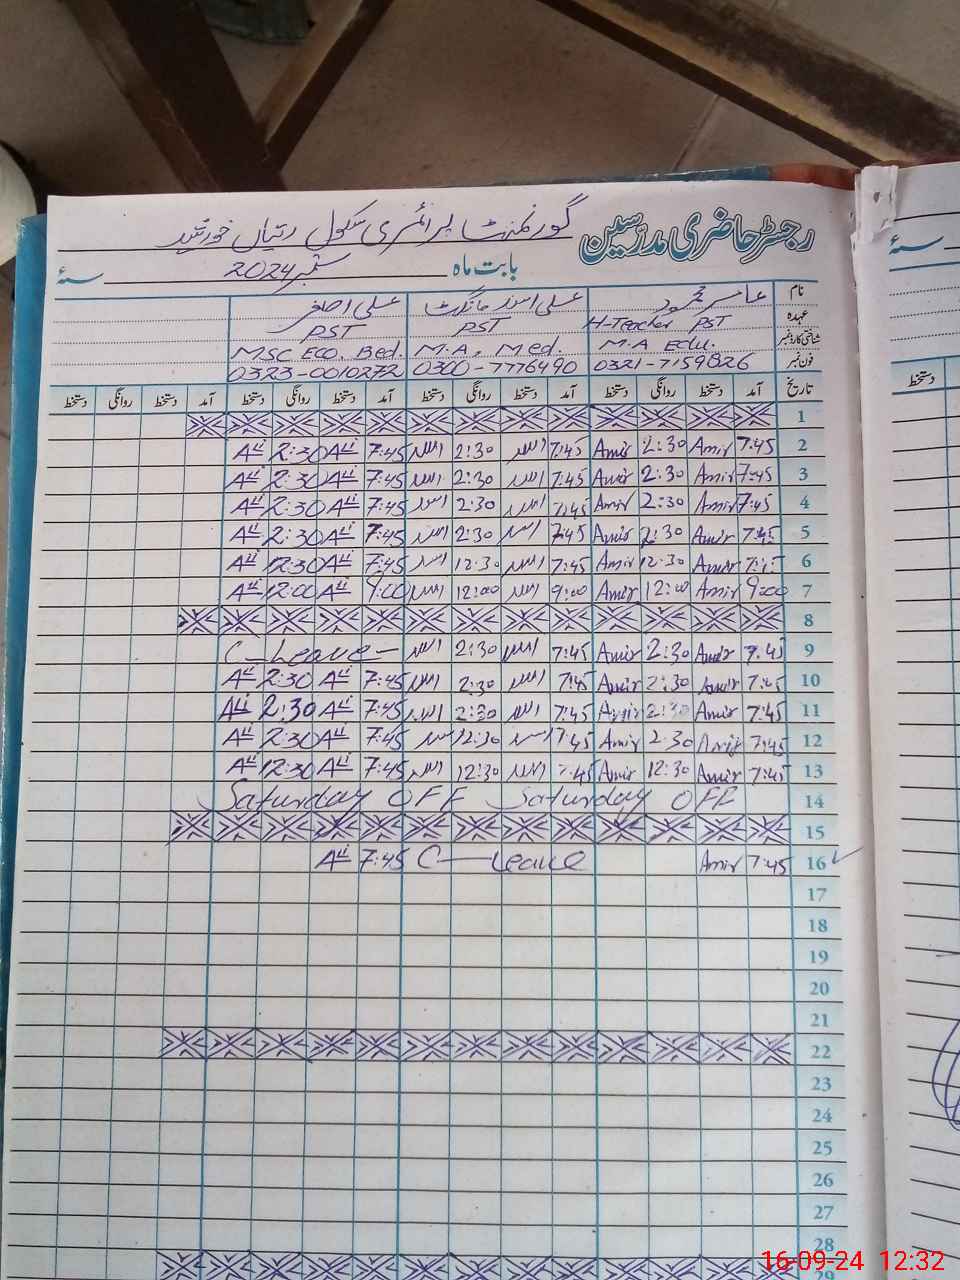 رجسٹر حاضری مدرسین گورنمنٹ پرائمری سکول رتیاں خورشید
بابت ماہ ستمبر 2024 سنۂ
نام عامر محمود علی اسد علی اصغر
عہدہ H-Teacher PST PST PST
شناختی کارڈ نمبر M.A Edu. M.A, Med. MSC Eco. Bed.
فون نمبر 0321-7159826 0300-7776490 0323-0010272
تاریخ آمد دستخط روانگی دستخط آمد دستخط روانگی دستخط آمد دستخط روانگی دستخط آمد دستخط روانگی دستخط
1
2 7:45 Amir 2:30 Amir 7:45 اسد 2:30 اسد 7:45 Ali 2:30 Ali
3 7:45 Amir 2:30 Amir 7:45 اسد 2:30 اسد 7:45 Ali 2:30 Ali
4 7:45 Amir 2:30 Amir 7:45 اسد 2:30 اسد 7:45 Ali 2:30 Ali
5 7:45 Amir 2:30 Amir 7:45 اسد 2:30 اسد 7:45 Ali 2:30 Ali
6 Amir 12:30 Amir 7:45 اسد 12:30 اسد 7:45 Ali 12:30 Ali
7 9:00 Amir 12:00 Amir 9:00 اسد 12:00 اسد 9:00 Ali 12:00 Ali
8
9 7:45 Amir 2:30 Amir 7:45 اسد 2:30 اسد C-Leave-
10 7:45 Amir 2:30 Amir 7:45 اسد 2:30 اسد 7:45 Ali 2:30 Ali
11 7:45 Amir 2:30 Amir 7:45 اسد 2:30 اسد 7:45 Ali 2:30 Ali
12 7:45 Amir 2:30 Amir 7:45 اسد 12:30 اسد 7:45 Ali 2:30 Ali
13 7:45 Amir 12:30 Amir 7:45 اسد 12:30 اسد 7:45 Ali 12:30 Ali
14 Saturday OFF Saturday OFF
15
16 7:45 Amir C-Leave 7:45 Ali
17
18
19
20
21
22
23
24
25
26
27
28
29
دستخط
16-09-24 12:32